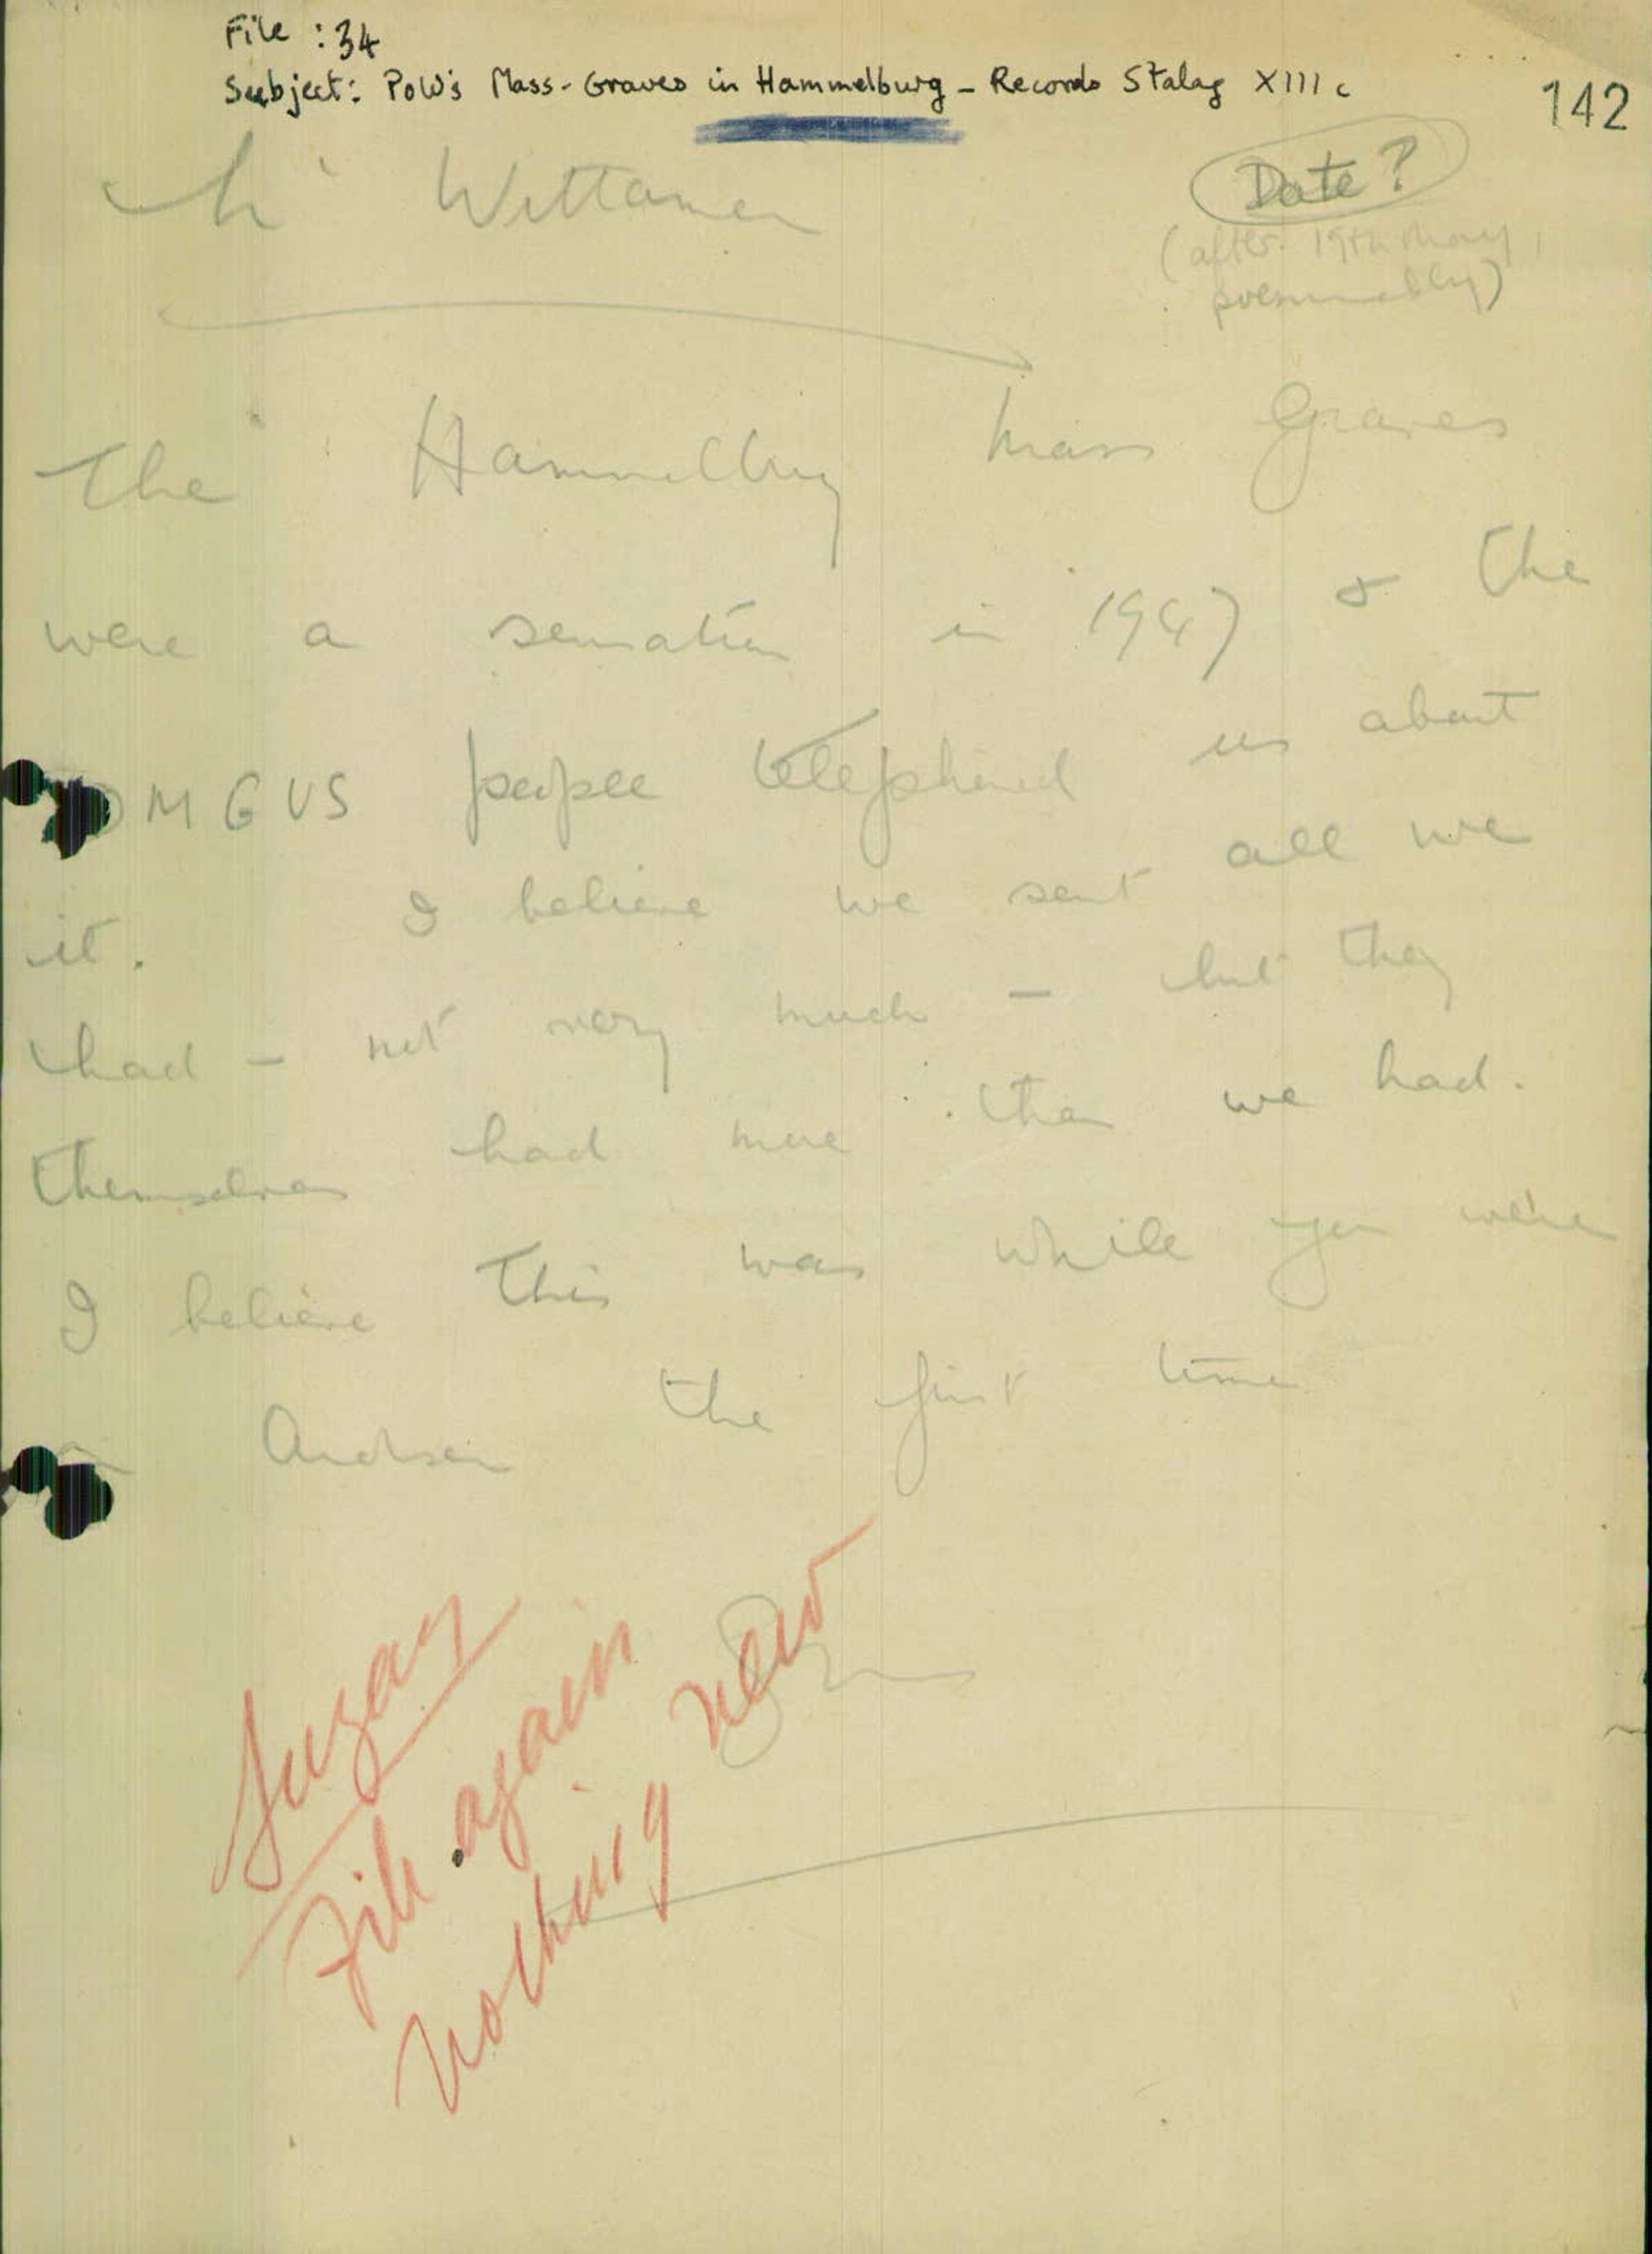 File : 34
Subject: PoW's Mass-Graves in Hammelburg - Records Stalag XIII c
142
Date?
(after 19th May, presumably)
Wittamer
The Hammelburg Mass Graves
were a sensation in 1947 & the
OMGUS people telephoned us about
it. I believe we sent all we
had - not very much - but they
themselves had more than we had.
I believe this was while you were
in Arolsen the first time
Suzan
File again
nothing new